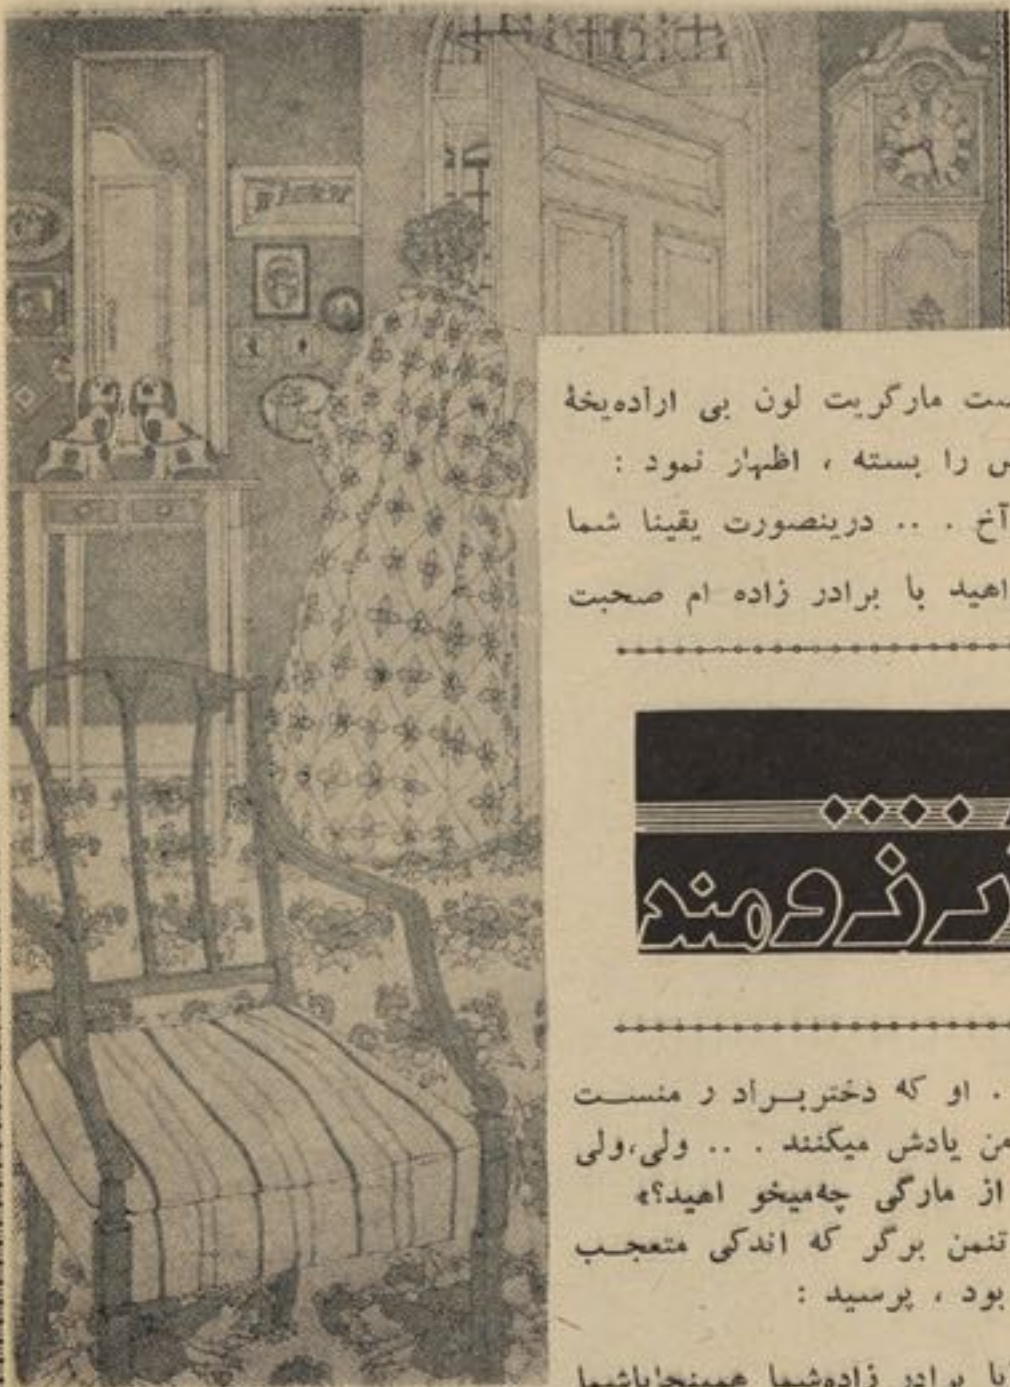 مارگریت لون بی ارادهیخهٔ
را بسته ، اظهار نمود :
آخ . .. درینصورت یقینا شما
اهید با برادر زاده ام صحبت
ژومند
. او که دختربـراد ر منســت
من یادش میکنند . .. ولی،ولی
از مارگی چهمیخو اهید؟»
تنمن برگر که اندکی متعجــب
بود ، پرسید :
برادر زادهشما